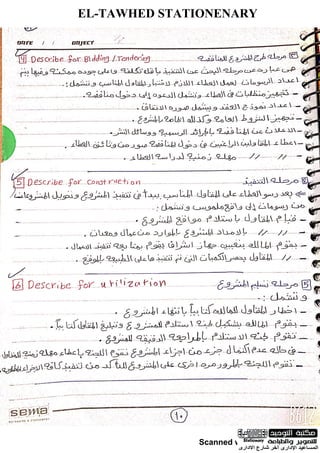 EL-TAWHED STATIONENARY
DATE / / OBJECT
4 Describe for Bidding / Tendering ④ مرحلة طرح المشروع للمناقصة
هى عبارة عن مرحلة البحث عن التنفيذ بأقل تكلفة وأعلى جودة ممكنة وفيها يتم
اعداد الرسومات لعمل العطاء اللازم لاختيار المقاول المناسب وتشمل:
- تجهيز متطلبات فى العطاء وتشمل الدعوة إلى دخول مناقصة.
- اعداد نموذج العقد ويشمل صورة الاتفاق.
- تجهيز الشروط العامة وكذلك الخاصة بالمشروع.
- الاعلان عن المناقصة بالجرائد الرسمية ووسائل النشر.
- اعطاء المقاولين الراغبين فى دخول المناقصة صورة من وثائق العطاء.
- // // مهلة زمنية لدراسة العطاء.
5 Describe for construction ⑤ مرحلة التنفيذ
بعد رسو العطاء على المقاول المناسب يبدأ فى تنفيذ المشروع وتحويل المشروعات
من رسومات إلى واقع ملموس وتشمل:
- قيام المقاول باستلام موقع المشروع.
- // // بالامداد المشروع بالموارد من عمال ومعدات.
- يقوم المالك بتعيين جهاز اشراف يقوم بمتابعة تنفيذ الاعمال.
- // المقاول بحصر الكميات التى تم تنفيذها على الطبيعة بالموقع.
6 Describe for utilization مرحلة تسليم المشروع
وتشمل:
- اخطار المقاول للمالك كتابياً بانتهاء المشروع.
- يقوم المالك بتشكيل لجنة استلام للمشروع وتبليغ المقاول كتابياً.
- تقوم لجنة الاستلام بالمراجعة الدقيقة للمشروع.
- فى حالة عدم اكتمال جزء من اجزاء المشروع تقوم اللجنة باعطاء مهلة زمنية للمقاول
- تقوم اللجنة بالمرور مرة اخرى على المشروع للتأكد من تنفيذ كافة الاجزاء
sema
١٠
Scanned
مكتبة التوحيد
للمستلزمات المكتبية والطباعة
المساعيد الإدارى آخر شارع الإدارى